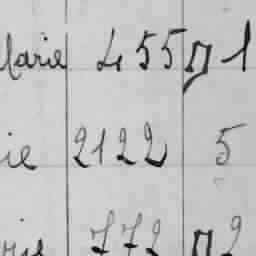 Marie 455 1
ie 2122 5
772 2